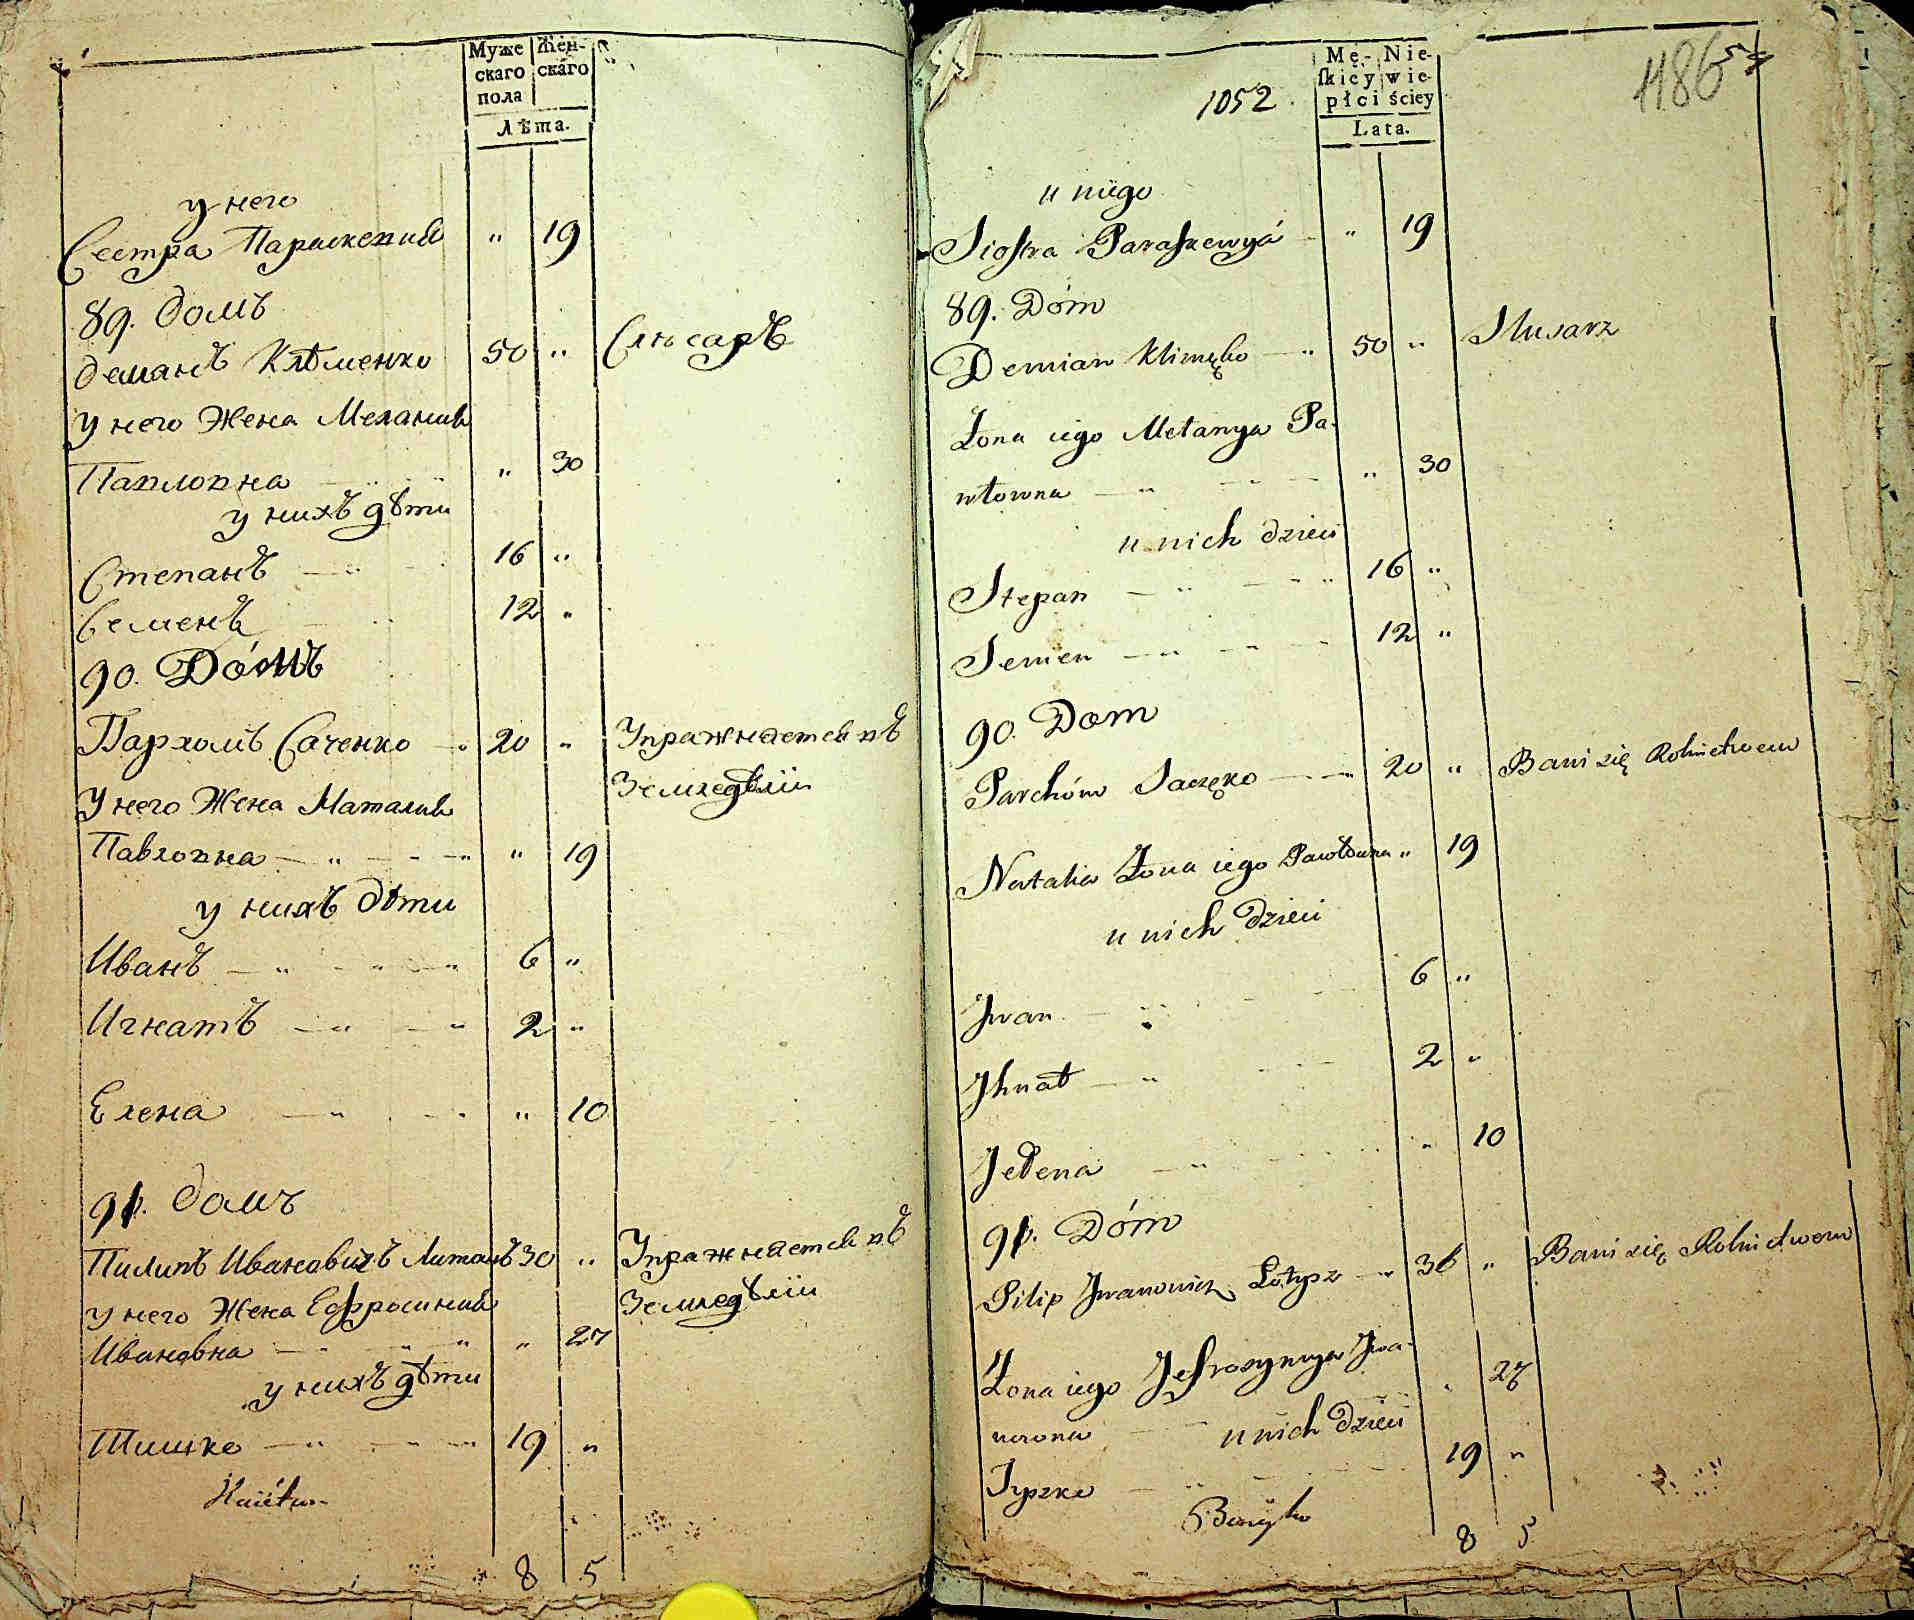 Муже Жен-
скаго скаго
пола
Лѣта.
у него
Сестра Параскевия " 19
89. домъ
Деманъ Клѣменко 50 " Слюсаръ
У него Жена Мелания
Павловна " 30
у нихъ дѣти
Степанъ 16 "
Семенъ 12 "
90. Dóмъ
Пархомъ Саченко 20 " Упражняется въ
Земледѣліи
У него Жена Маталия
Павловна " 19
у нихъ дѣти
Иванъ 6 "
Игнатъ 2 "
Елена " 10
91. домъ
Пилипъ Ивановичъ 30 " Упражняется въ
Земледѣліи
у него Жена Ефросиния
Ивановна " 27
у нихъ дѣти
Тишке 19 "
8 5
Mę- Nie-
ſkiey wie-
płci ściey
Lata.
1052
1186
54
u niego
Siostra Paraszewya " 19
89. Dóm
Demian Klimęko " 50 " Slusarz
Żona iego Mełanya Pa-
włowna " 30
u nich dzieci
Stepan 16 "
Semen 12 "
90. Dom
Parchóm Saczęko 20 " Bawi się Rolnictwem
Natalia Żona iego Pawłowna " 19
u nich dzieci
Jwan 6 "
Jhnat 2 "
Jełena " 10
91. Dóm
Pilip Jwanowicz Łotysz 36 " Bawi się Rolnictwem
Żona iego Jefrosynya Jwa-
nowna " 27
u nich dzieci
Tyszke 19 "
8 5